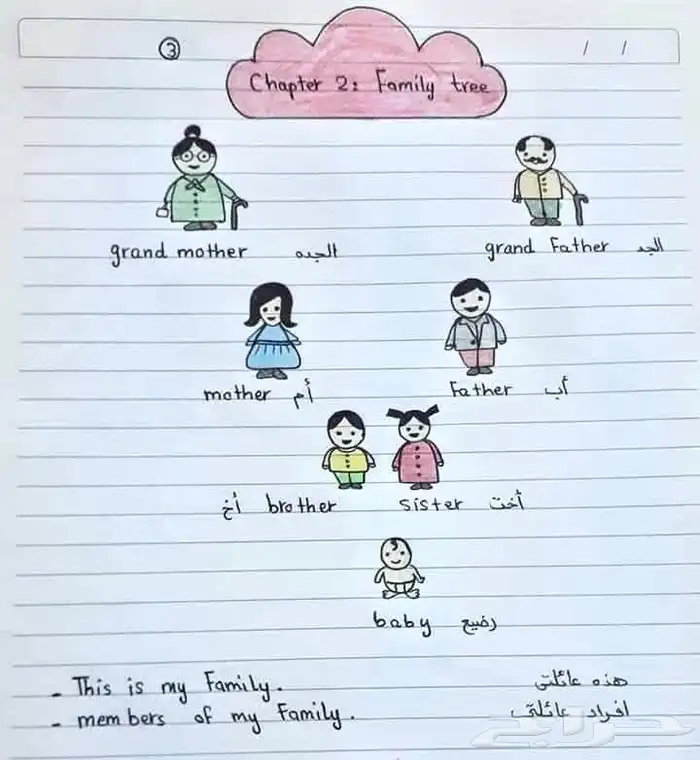 ③ / /
Chapter 2: Family tree
grand mother الجده grand Father الجد
mother أم Father أب
أخ brother sister أخت
baby رضيع
- This is my Family. هذه عائلتي
- members of my Family. افراد عائلتي
حراج